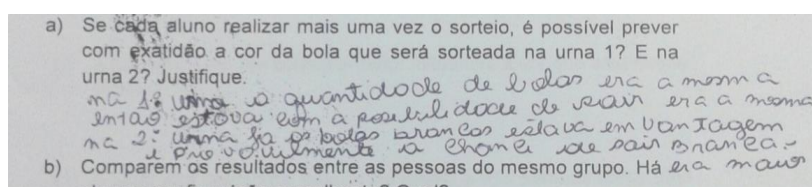 a) Se cada aluno realizar mais uma vez o sorteio, é possível prever
com exatidão a cor da bola que será sorteada na urna 1? E na
urna 2? Justifique.
na 1ª urna a quantidade de bolas era a mesma
então estava com a possibilidade de sair era a mesma
na 2ª urna já as bolas brancas estava em vantagem
e provavilmente a chance de sair branca
b) Comparem os resultados entre as pessoas do mesmo grupo. Há era mais